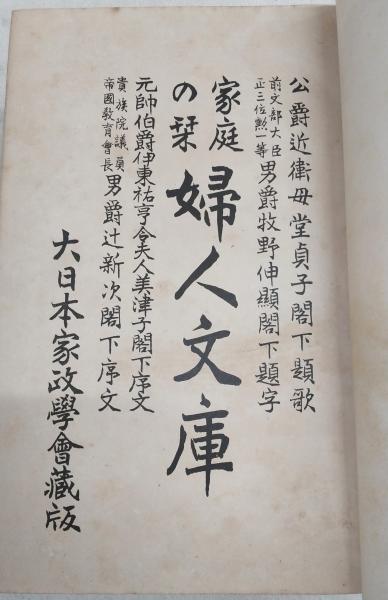 公爵近衛母堂貞子閣下題歌
前文部大臣
正三位勲一等
男爵牧野伸顯閣下題字
家庭
の栞
婦人文庫
元帥伯爵伊東祐亨令夫人美津子閣下序文
貴族院議員
帝國敎育會長
男爵辻新次閣下序文
大日本家政學會藏版